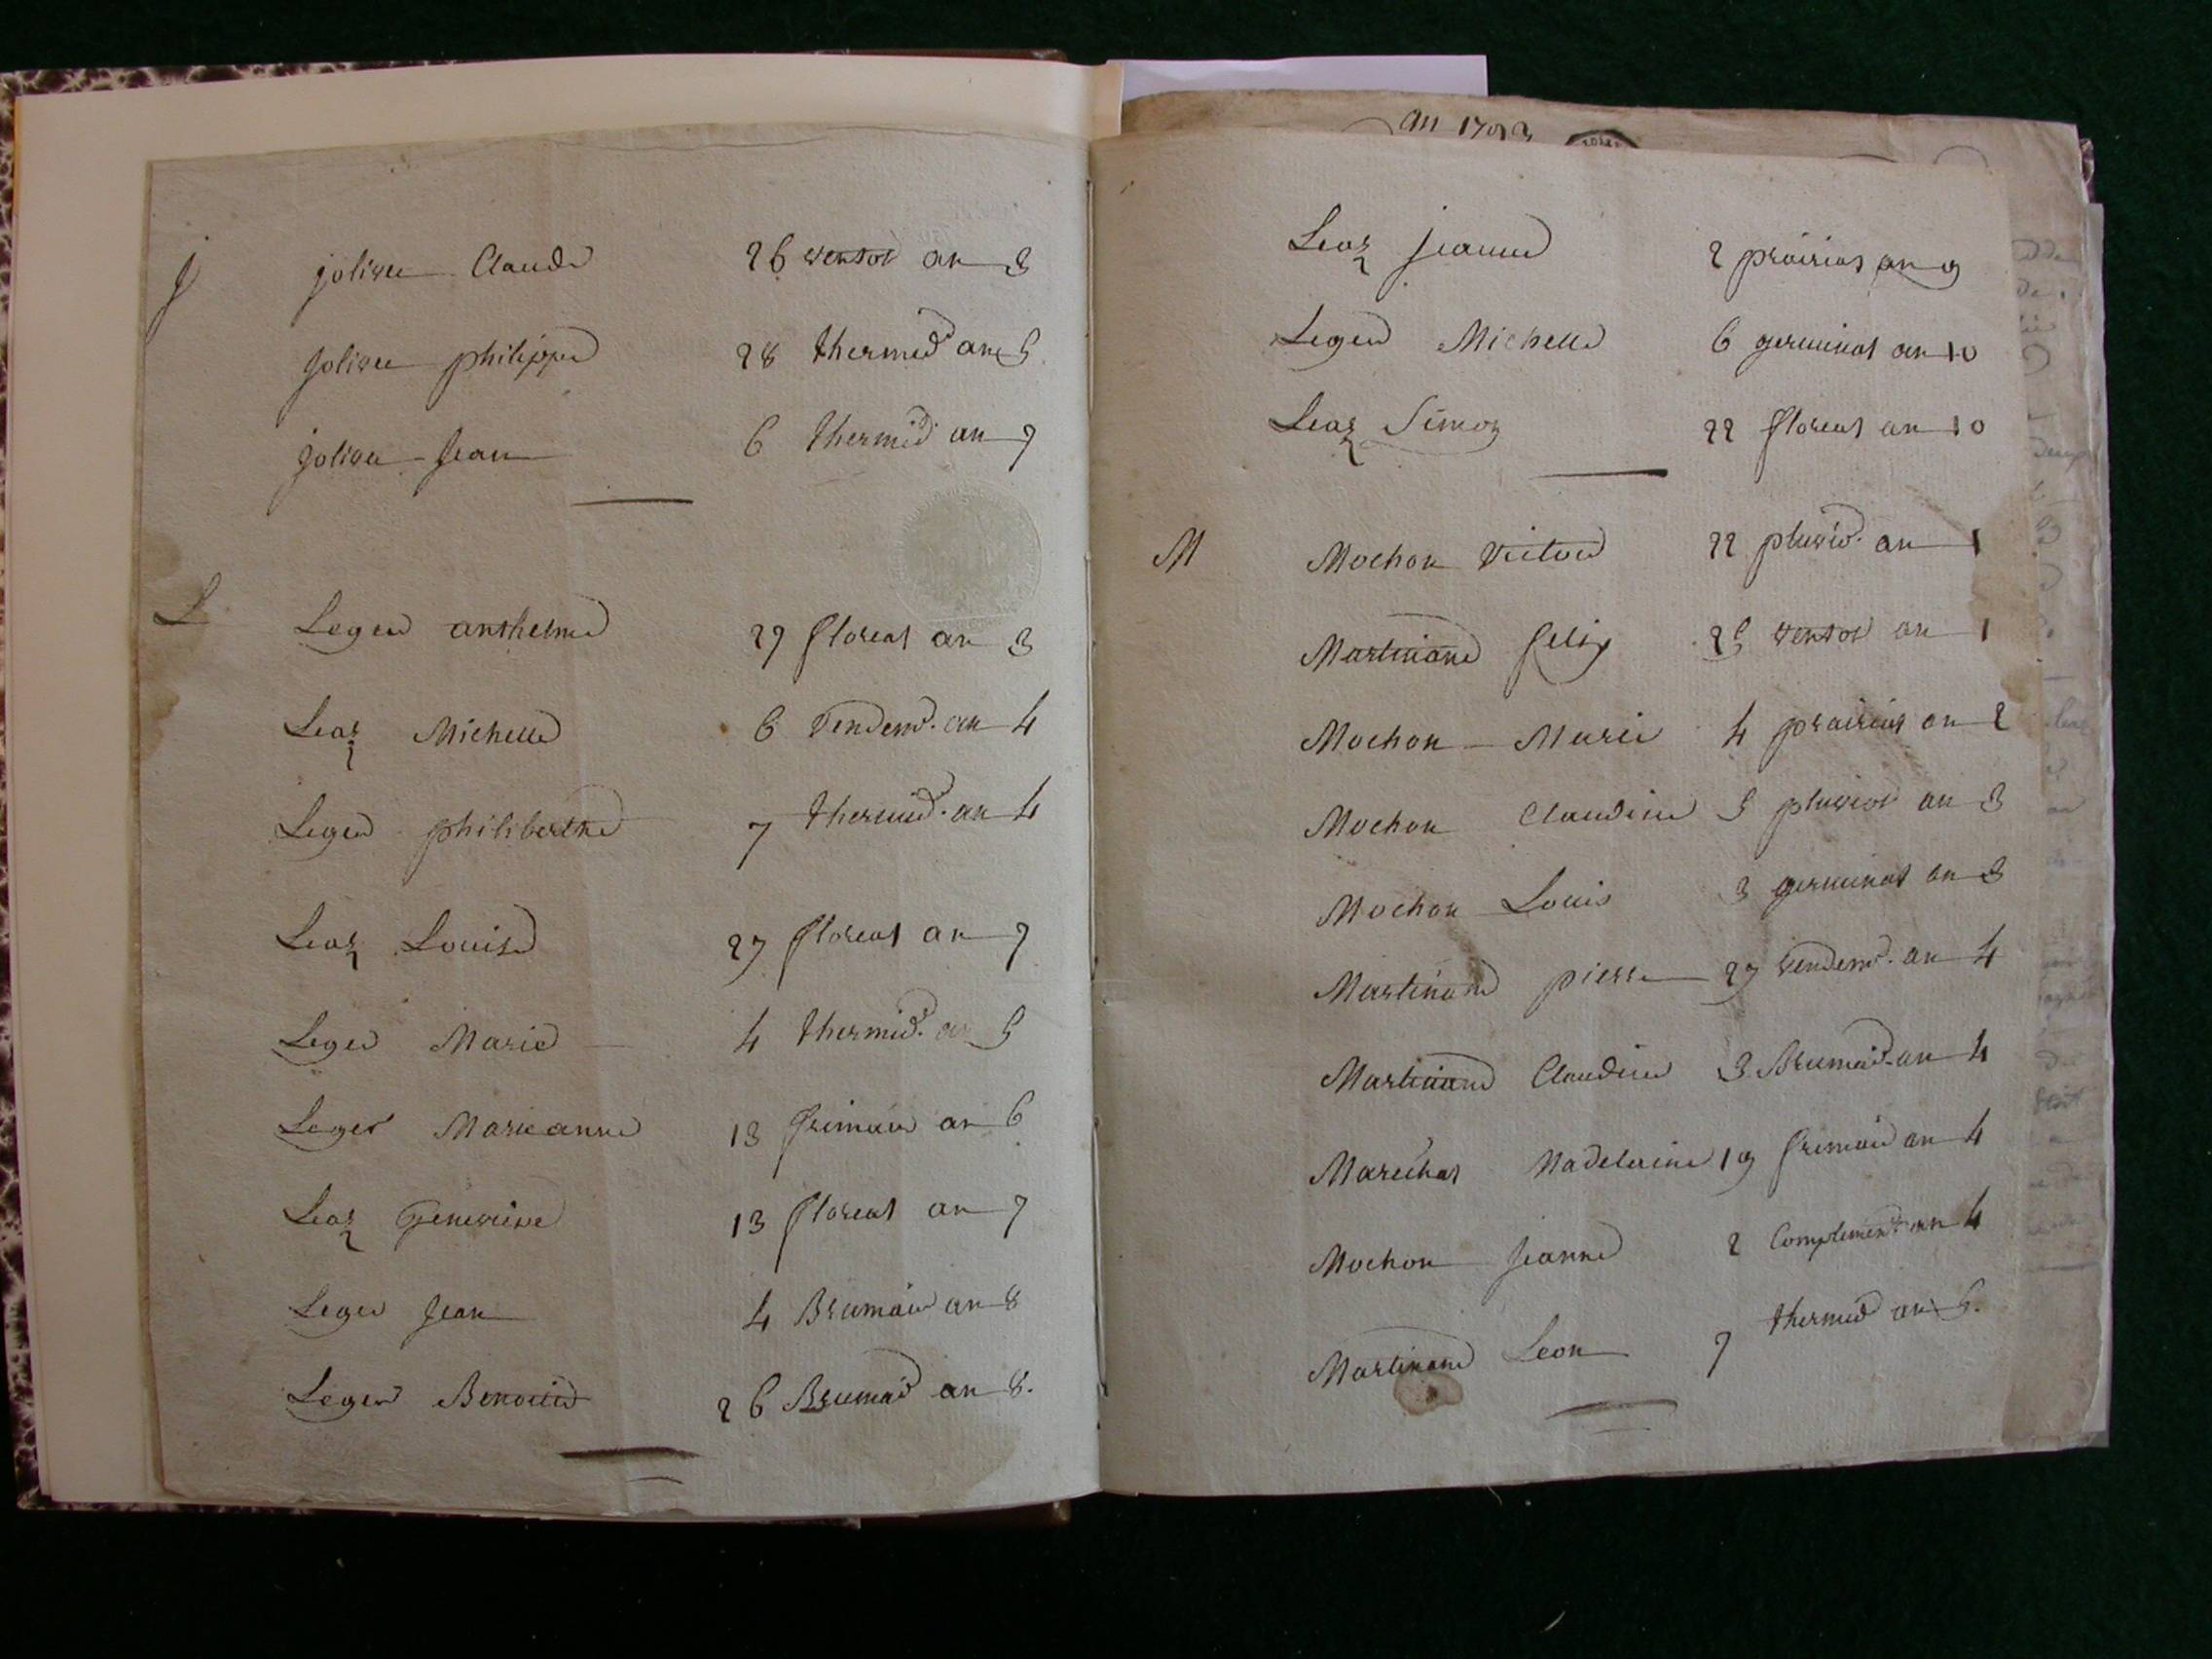 J
jolivee Claude 26 ventos an 3
jolivee philippe 28 thermid an 5
jolivee Jean 6 thermid an 7
L
Leger anthelme 29 floreal an 3
Leaz Michelle 6 Vendem. an 4
Leger philiberthe 7 thermid. an 4
Leaz Louise 27 floreal an 7
Leger Marie 4 thermid. an 5
Leger Marieanne 13 frimaire an 6
Leaz Genevieve 13 floreal an 7
Leger Jean 4 Brumaire an 8
Leger Benoist 26 Brumair an 8.
an 1793
Leaz jeanne 2 prairial an 9
Leger Michelle 6 germinal an 10
Leaz Simon 22 floreal an 10
M
Mochon Victoire 22 pluvio. an 1
Martinand felix 25 ventos an 1
Mochon Marie 4 prairial an 2
Mochon Claudine 5 pluvios an 3
Mochon Louis 3 germinal an 3
Martinand pierre 27 Vendem. an 4
Martinand Claudine 3 Brumair. an 4
Marechal Madeleine 19 frimaire an 4
Mochon Jeanne 2 Complement an 4
Martinand Leon 7 thermid an 5.